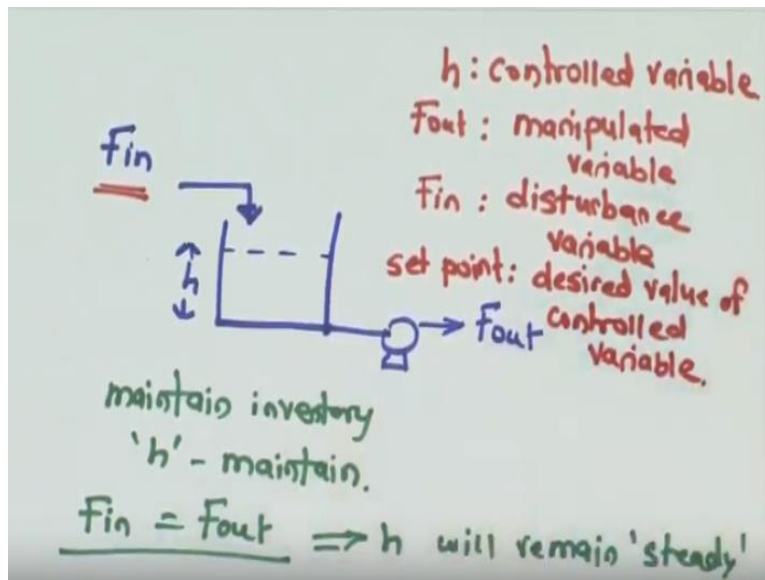 h : controlled variable
Fout : manipulated
variable
Fin
Fin : disturbance
variable
set point : desired value of
controlled
variable.
h
Fout
maintain inventory
'h' - maintain.
Fin = Fout ⇒ h will remain 'steady'